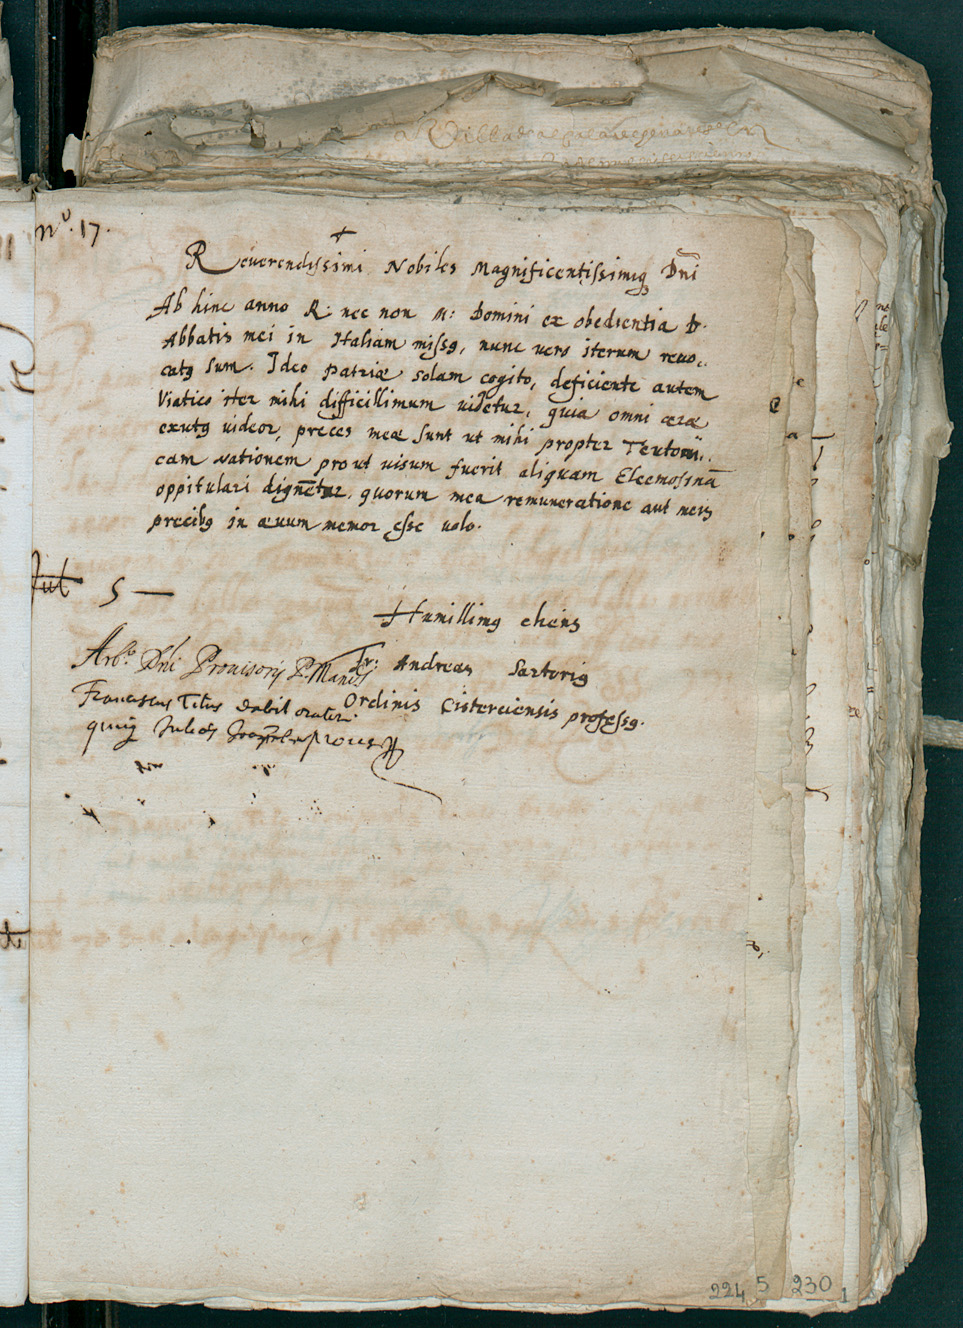 nº. 17.
+
Reverendissimi Nobiles Magnificentissimiq Dñi
Ab hinc anno R. nec non M: Domini ex obedientia D.
Abbatis mei in Italiam missq, nunc vero iterum revo„
catq sum. Ideo patriæ solam cogito, deficiente autem
Viatico iter mihi difficillimum videtur, quia omni ære
exutq videor, preces meæ sunt ut mihi propter Teutoni„
cam Nationem prout uisum fuerit aliquam Eleemosinã
oppitulari dignẽtur, quorum mea remuneratione aut meis
precibq in æuum memor esse uolo.
Jul 5 —
Humillimq cliens
Fr: Andreas Sartoriq
Ordinis Cisterciensis professq.
Arb.º Dñi Provisorij P.
Franciscus Titus dabit oratori
quinq Julios
224 5 230 1